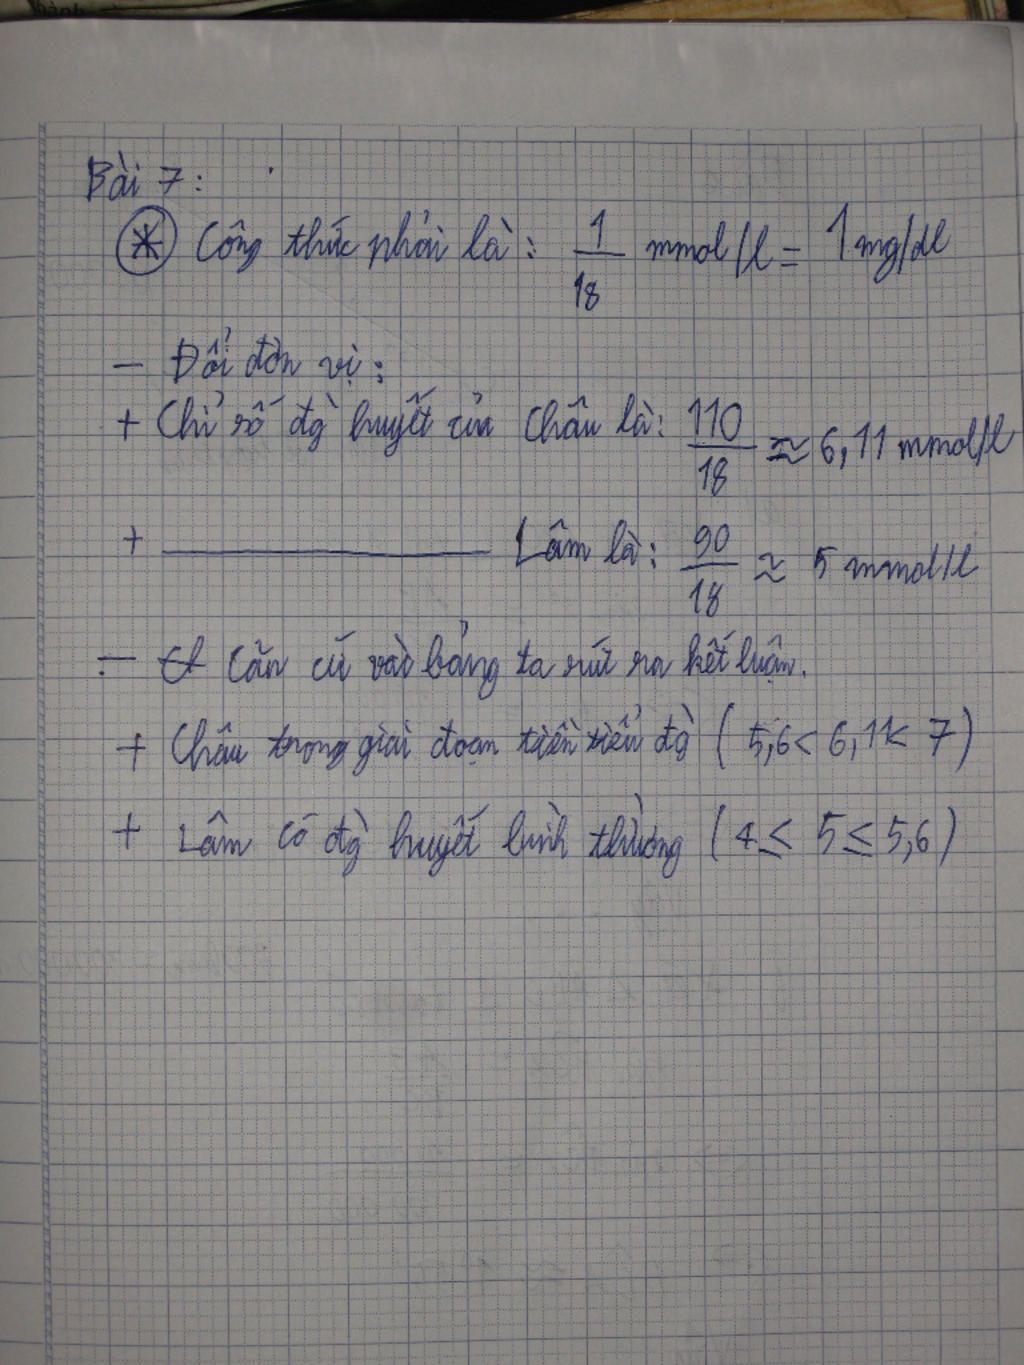 Bài 7:
* Công thức phải là: 1/18 mmol/l = 1mg/dl
- Đổi đơn vị:
+ Chỉ số đg huyết của Châu là: 110/18 ≈ 6,11 mmol/l
+ ———— Lâm là: 90/18 ≈ 5 mmol/l
- Căn cứ vào bảng ta rút ra kết luận.
+ Châu trong giai đoạn tiền tiểu đg (5,6 < 6,11 < 7)
+ Lâm có đg huyết bình thường (4 ≤ 5 ≤ 5,6)